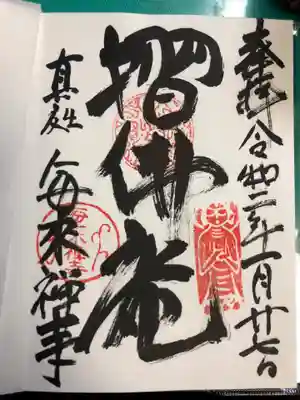 奉拝 令和二年一月廿七日
摺佛庵
真庭 毎来禅寺